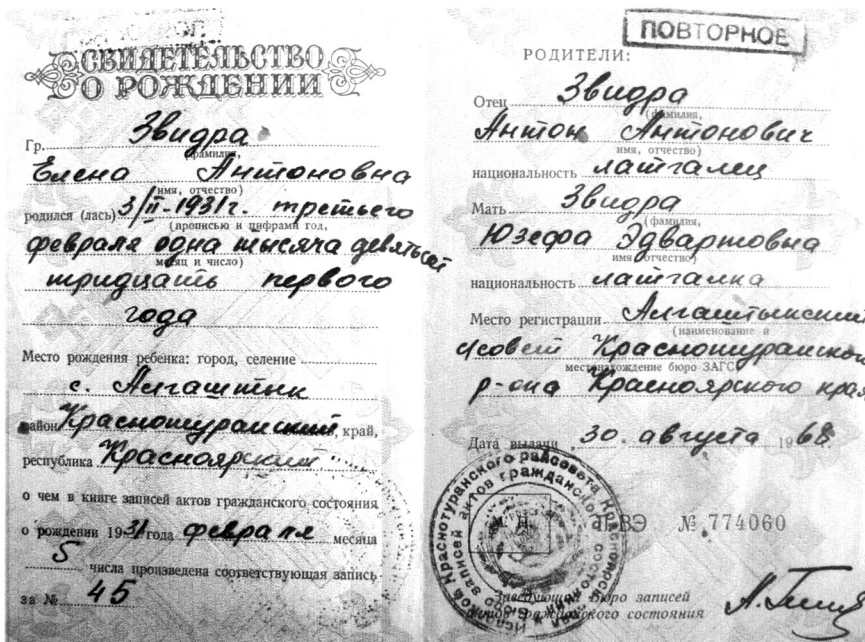 СВИДЕТЕЛЬСТВО
О РОЖДЕНИИ
Гр. Звидра
(фамилия,
Елена Антоновна
имя, отчество)
родился (лась) 3/II-1931г. третьего
(прописью и цифрами год,
февраля одна тысяча девятьсот
месяц и число)
тридцать первого
года
Место рождения ребенка: город, селение
с. Алгаштык
район Краснотуранский край,
республика Красноярский
о чем в книге записей актов гражданского состояния
о рождении 1931 года февраля месяца
5 числа произведена соответствующая запись
за № 45
ПОВТОРНОЕ
РОДИТЕЛИ:
Отец Звидра
(фамилия,
Антон Антонович
имя, отчество)
национальность латгалец
Мать Звидра
(фамилия,
Юзефа Эдвартовна
имя отчество)
национальность латгалка
Место регистрации Алгаштыкский
(наименование и
с/совет Краснотуранского
местонахождение бюро ЗАГС)
р-она Красноярского края
Дата выдачи 30. августа 1968.
ВЭ № 774060
Заведующий бюро записей
актов гражданского состояния